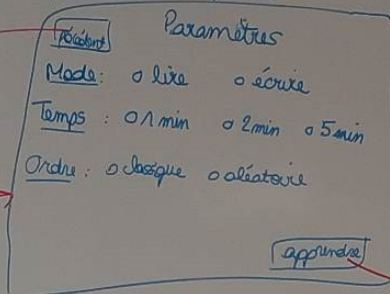 précédent
Paramètres
Mode: o lire o écrire
Temps : o 1 min o 2 min o 5 min
Ordre : o classique o aléatoire
apprendre